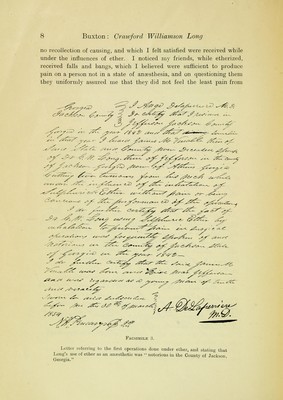 8 Buxton: Crawford Williamson Long
no recollection of causing, and which I felt satisfied were received while
under the influences of ether. I noticed my friends, while etherized,
received falls and bangs, which I believed were sufficient to produce
pain on a person not in a state of anæsthesia, and on questioning them
they uniformly assured me that they did not feel the least pain from
Georgia
Jackson County
I Ange DeLaperriere M.D.
Do certify that I reside in
Jefferson Jackson County
Georgia in the year 1842 and that
in that year I heard James M Venable then of
State and County
of Dr C.W. Long, then of Jefferson in the county
of Jackson, Georgia
Cutting two tumours from his neck while
under the influence of the inhalation of
Sulphuric Ether without pain or being
conscious of the performance of the operation
I do further certify that the fact of
Dr C.W. Long using Sulphuric Ether by
inhalation to prevent pain in surgical
operations was frequently spoken of and
notorious in the County of Jackson State
of Georgia in the year 1842
I do further certify that the
Venable was
and was regarded as a young man of truth
and veracity
Sworn to and subscribed
before me this 30th of March
1854
A. DeLaperriere
M.D.
Facsimile 2.
Letter referring to the first operations done under ether, and stating that
Long's use of ether as an anæsthetic was "notorious in the County of Jackson,
Georgia."